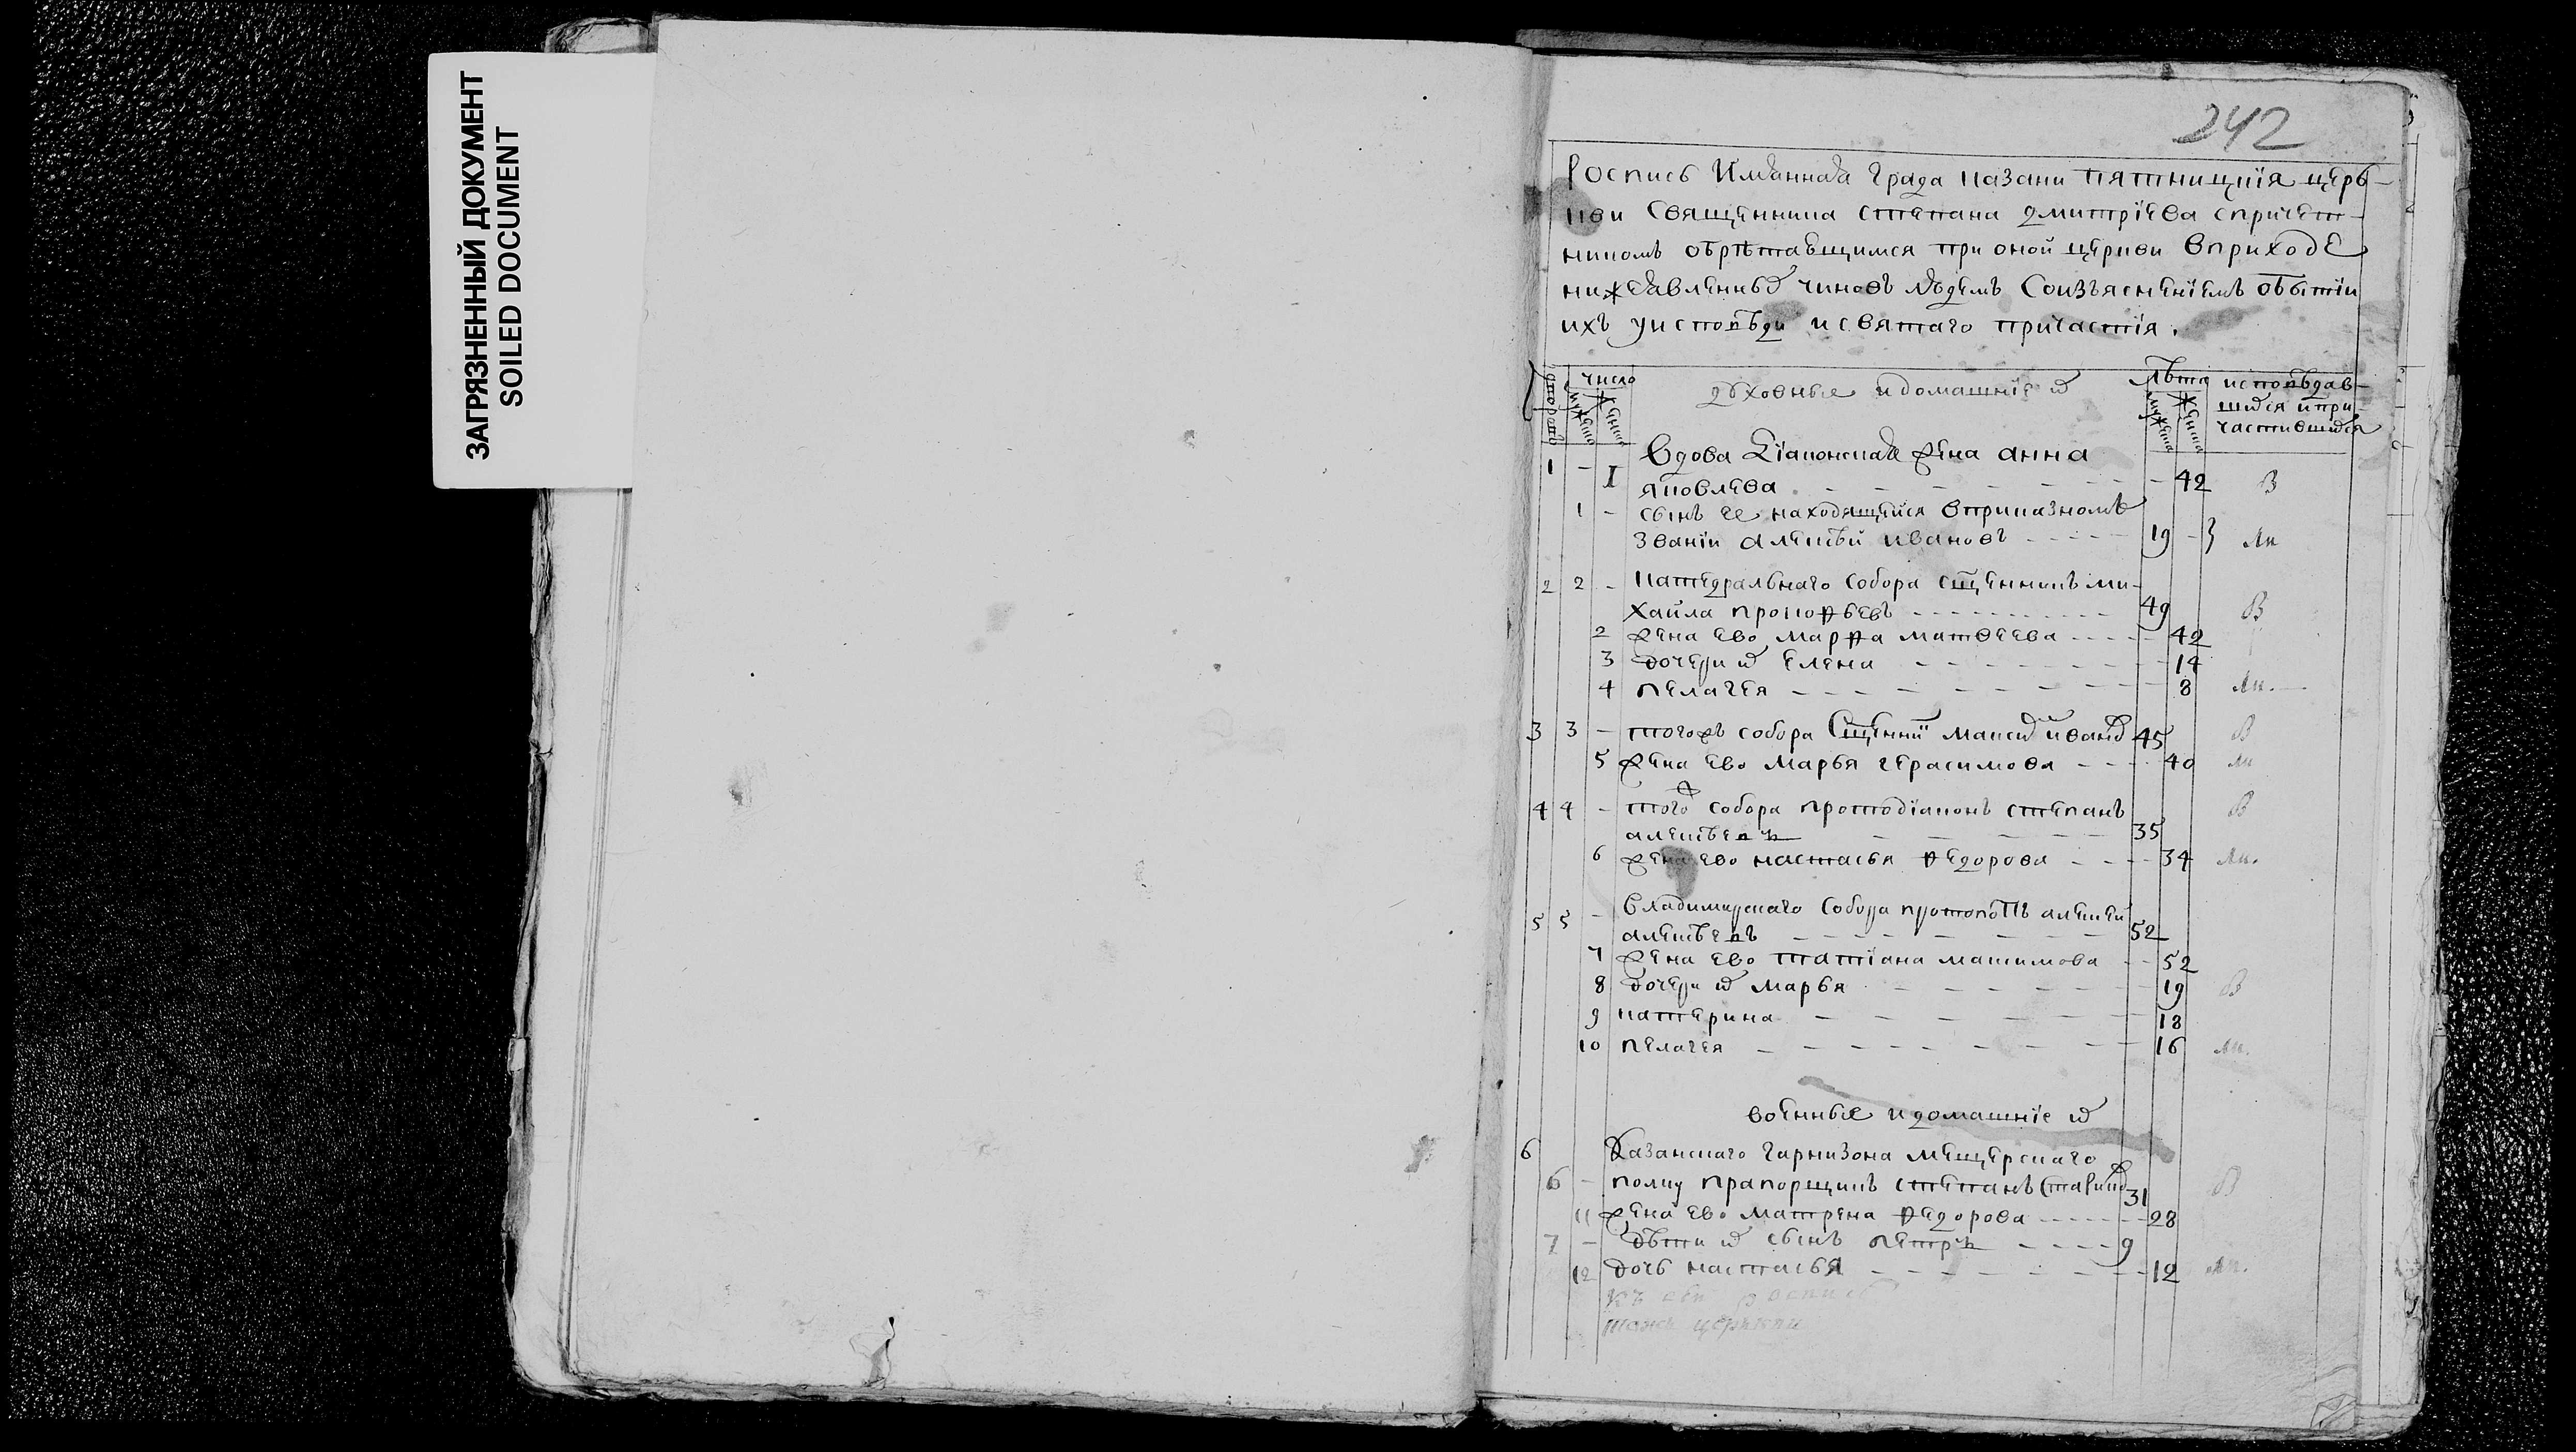 ЗАГРЯЗНЕННЫЙ ДОКУМЕНТ
SOILED DOCUMENT
242
Роспись Имянная града казани пятницкія церь-
кви священника степана дмитріева спричет-
никомъ обрѣтающимся при оной церкви вприходе
нижеявленныхъ чиновъ людемъ соизъясненіемъ обытіи
ихъ уисповѣди исвятаго причастія.
число
мужеска
женска
духовные идомашніе их
лѣта
мужеска
женска
исповѣдав-
шихся ипри-
частившихся
1 - 1 вдова діаконская жена анна
яковлева - 42 В
1 - сынъ ее находящийся вприказномъ
званіи алексѣй ивановъ 19 - Ли
2 2 - катедральнаго собора сщенникъ ми-
хаила прокофьевъ 49 В
2 жена ево марфа матвеева 42
3 дочери их елена 14
4 пелагея 8 Ли.
3 3 - тогожъ собора сщенни максим иванов 45 В
5 жена ево марья герасимова 40 Ли
4 4 - того ж собора протодіаконъ степанъ В
алексѣевъ 35
6 жена ево настасья федорова 34 Ли.
5 5 - владимирскаго собора протопопъ алексей
алексѣевъ 52
7 жена ево татіана максимова 52
8 дочери их марья 19 В
9 катерина 18
10 пелагея 16 Ли.
военные идомашніе их
6 Казанскаго гарнизона мещерскаго
6 - полку прапорщикъ степанъ 31 В
11 жена ево матрена федорова 28
7 - дѣти их сынъ петръ 9
12 дочь настасья 12 Ли.
къ сей росписи
церкви